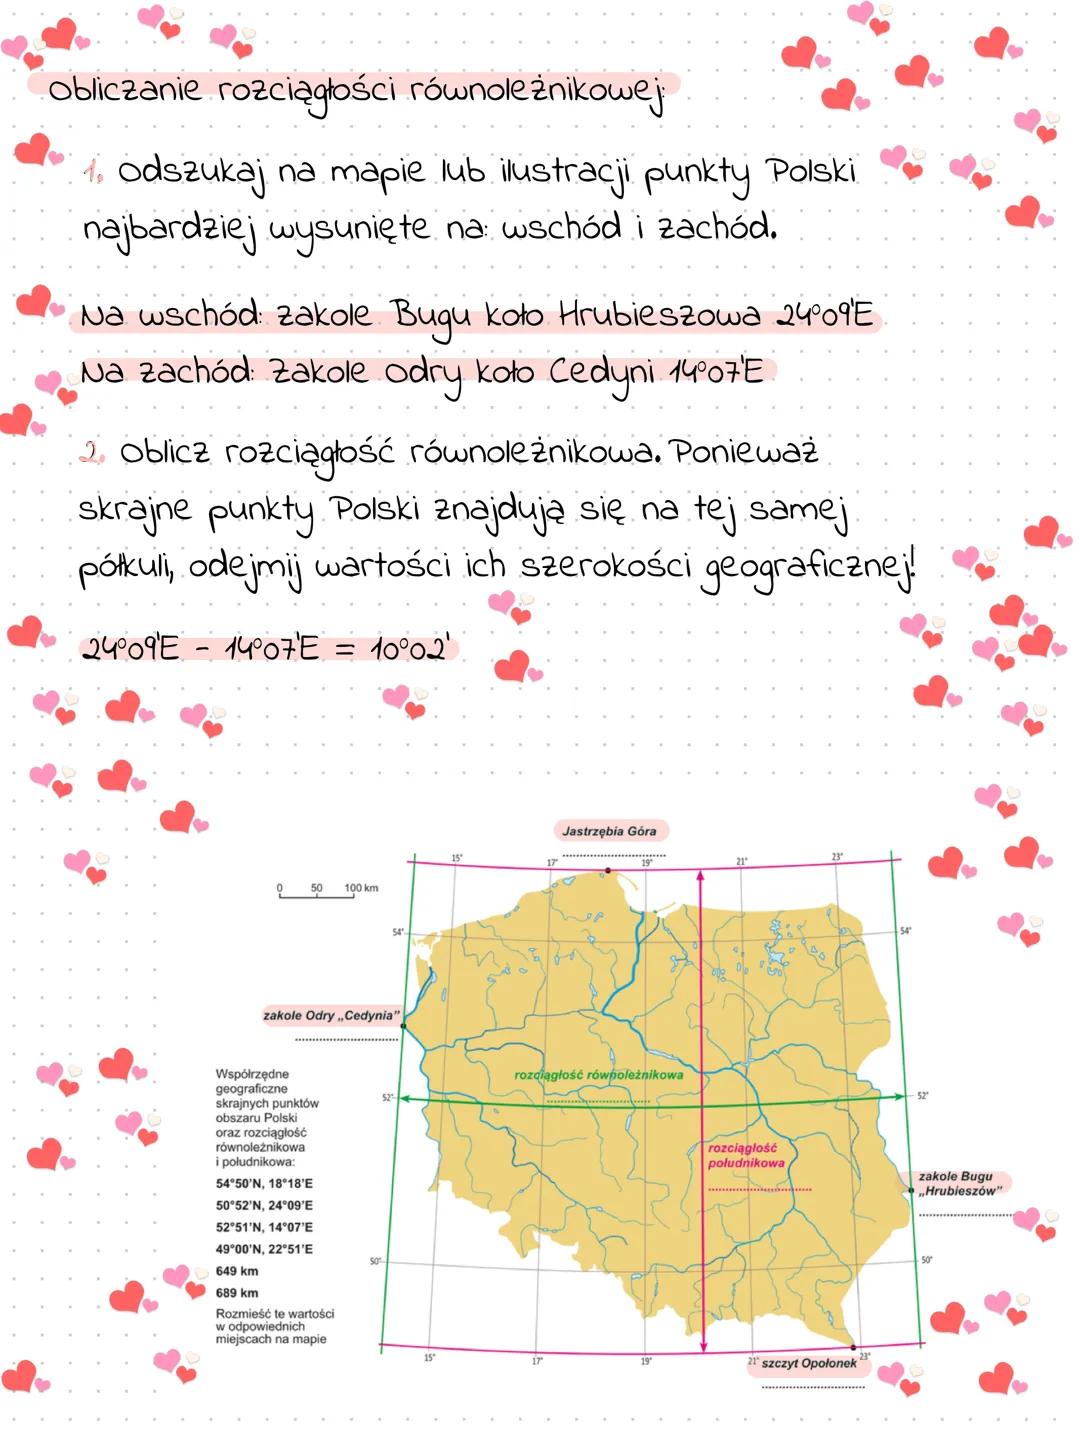 Obliczanie rozciągłości równoleżnikowej:
1. Odszukaj na mapie lub ilustracji punkty Polski
najbardziej wysunięte na: wschód i zachód.
Na wschód: zakole Bugu koło Hrubieszowa 24°09'E
Na zachód: Zakole Odry koło Cedyni 14°07'E
2. Oblicz rozciągłość równoleżnikowa. Ponieważ
skrajne punkty Polski znajdują się na tej samej
półkuli, odejmij wartości ich szerokości geograficznej!
24°09'E - 14°07'E = 10°02'
Jastrzębia Góra
15° 17° 19° 21° 23°
0 50 100 km
54° 54°
zakole Odry „Cedynia”
Współrzędne
geograficzne
skrajnych punktów
obszaru Polski
oraz rozciągłość
równoleżnikowa
i południkowa:
54°50'N, 18°18'E
50°52'N, 24°09'E
52°51'N, 14°07'E
49°00'N, 22°51'E
649 km
689 km
Rozmieść te wartości
w odpowiednich
miejscach na mapie
rozciągłość równoleżnikowa
52° 52°
rozciągłość
południkowa
zakole Bugu
„Hrubieszów”
50° 50°
15° 17° 19° 21° 23°
szczyt Opołonek